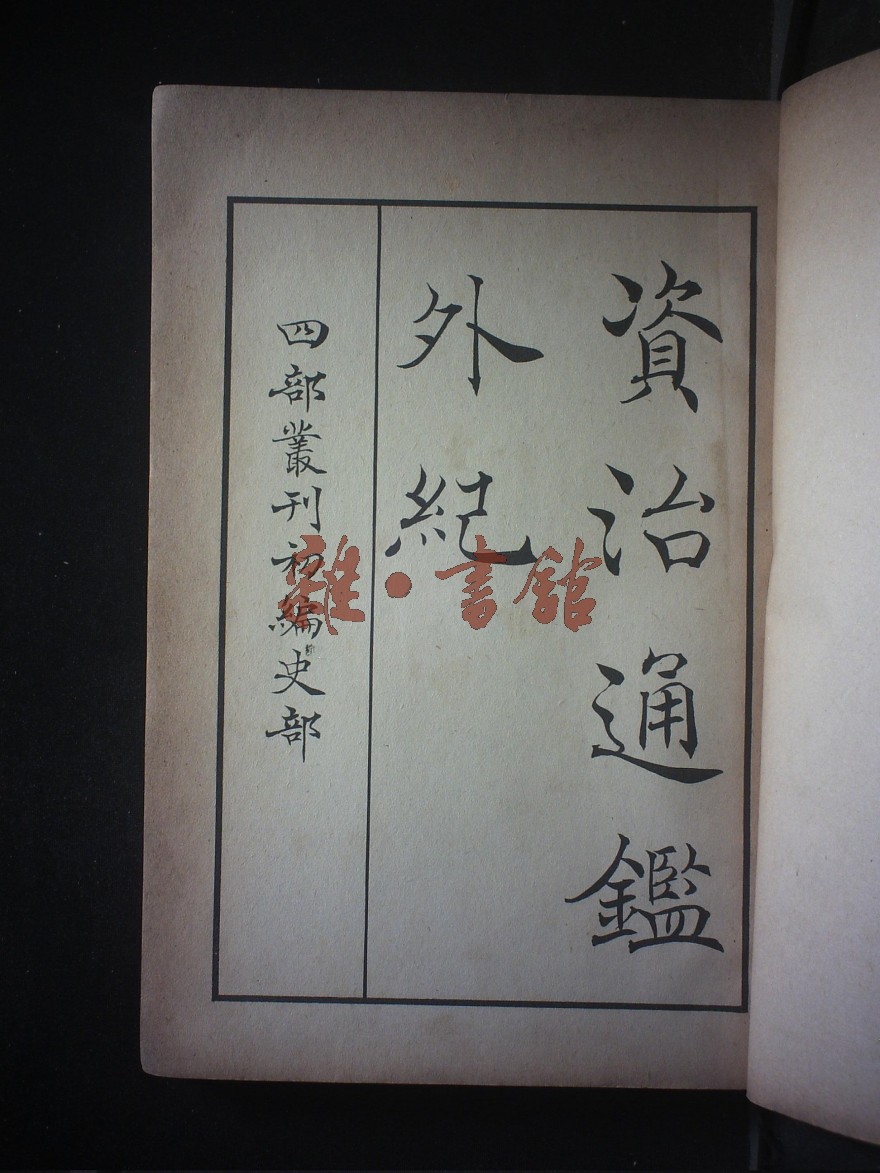 資治通鑑
外紀
四部叢刊初編史部
雜·書館